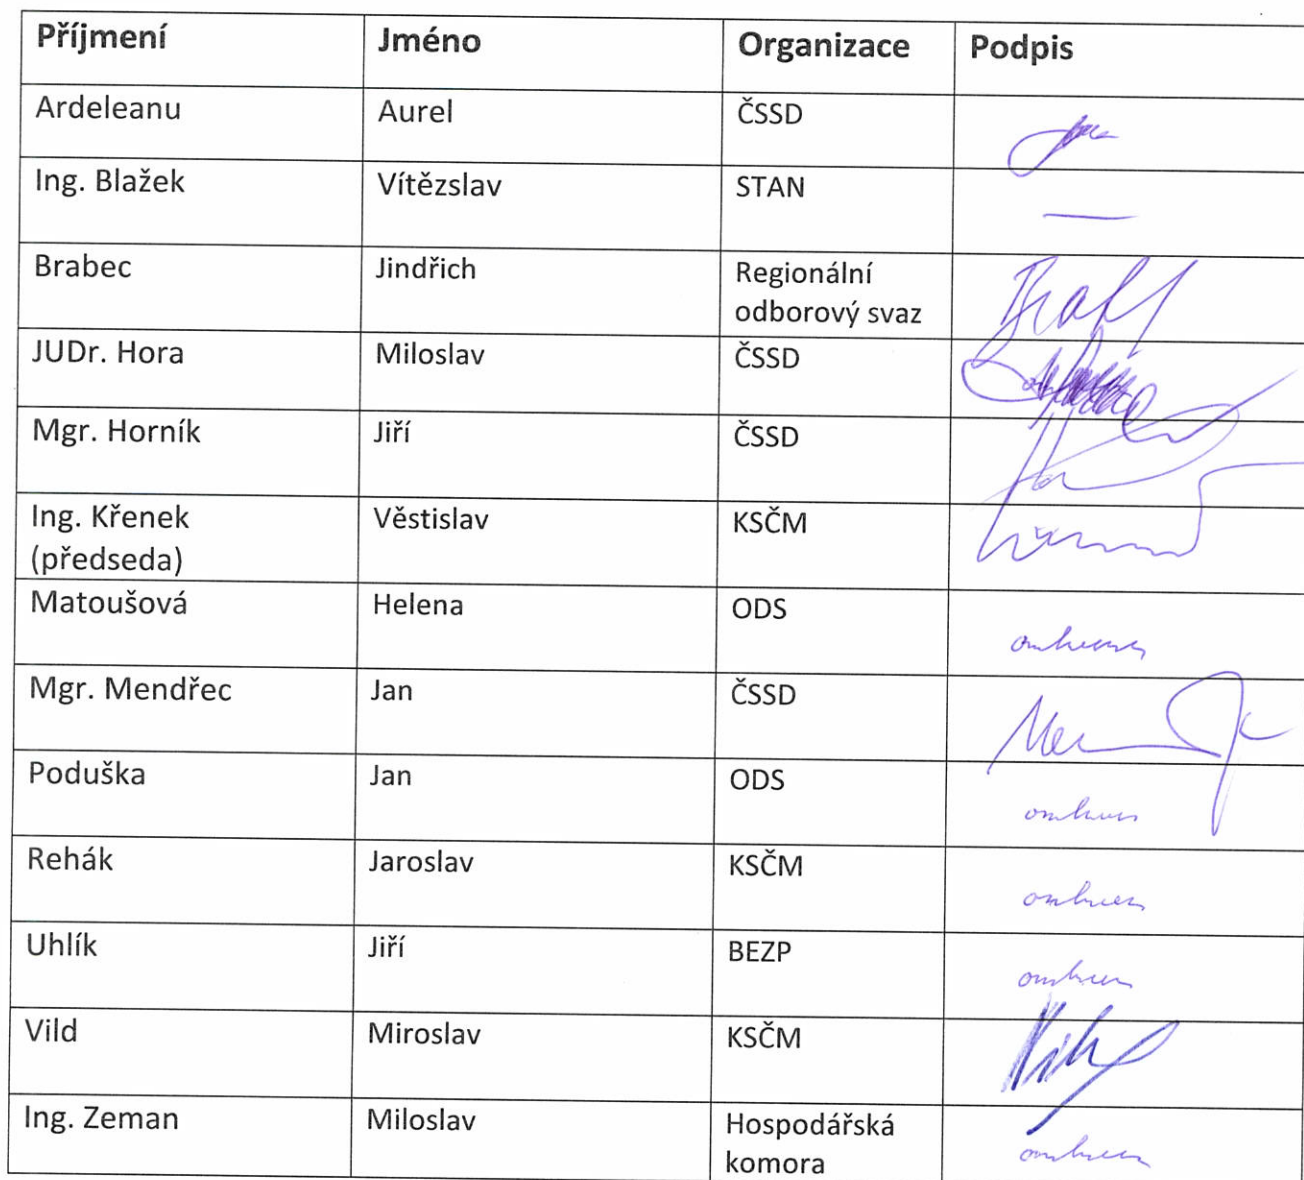 Příjmení Jméno Organizace Podpis
Ardeleanu Aurel ČSSD
Ing. Blažek Vítězslav STAN
Brabec Jindřich Regionální
odborový svaz
JUDr. Hora Miloslav ČSSD
Mgr. Horník Jiří ČSSD
Ing. Křenek Věstislav KSČM
(předseda)
Matoušová Helena ODS omluvena
Mgr. Mendřec Jan ČSSD
Poduška Jan ODS omluven
Rehák Jaroslav KSČM omluven
Uhlík Jiří BEZP omluven
Vild Miroslav KSČM
Ing. Zeman Miloslav Hospodářská
komora omluven